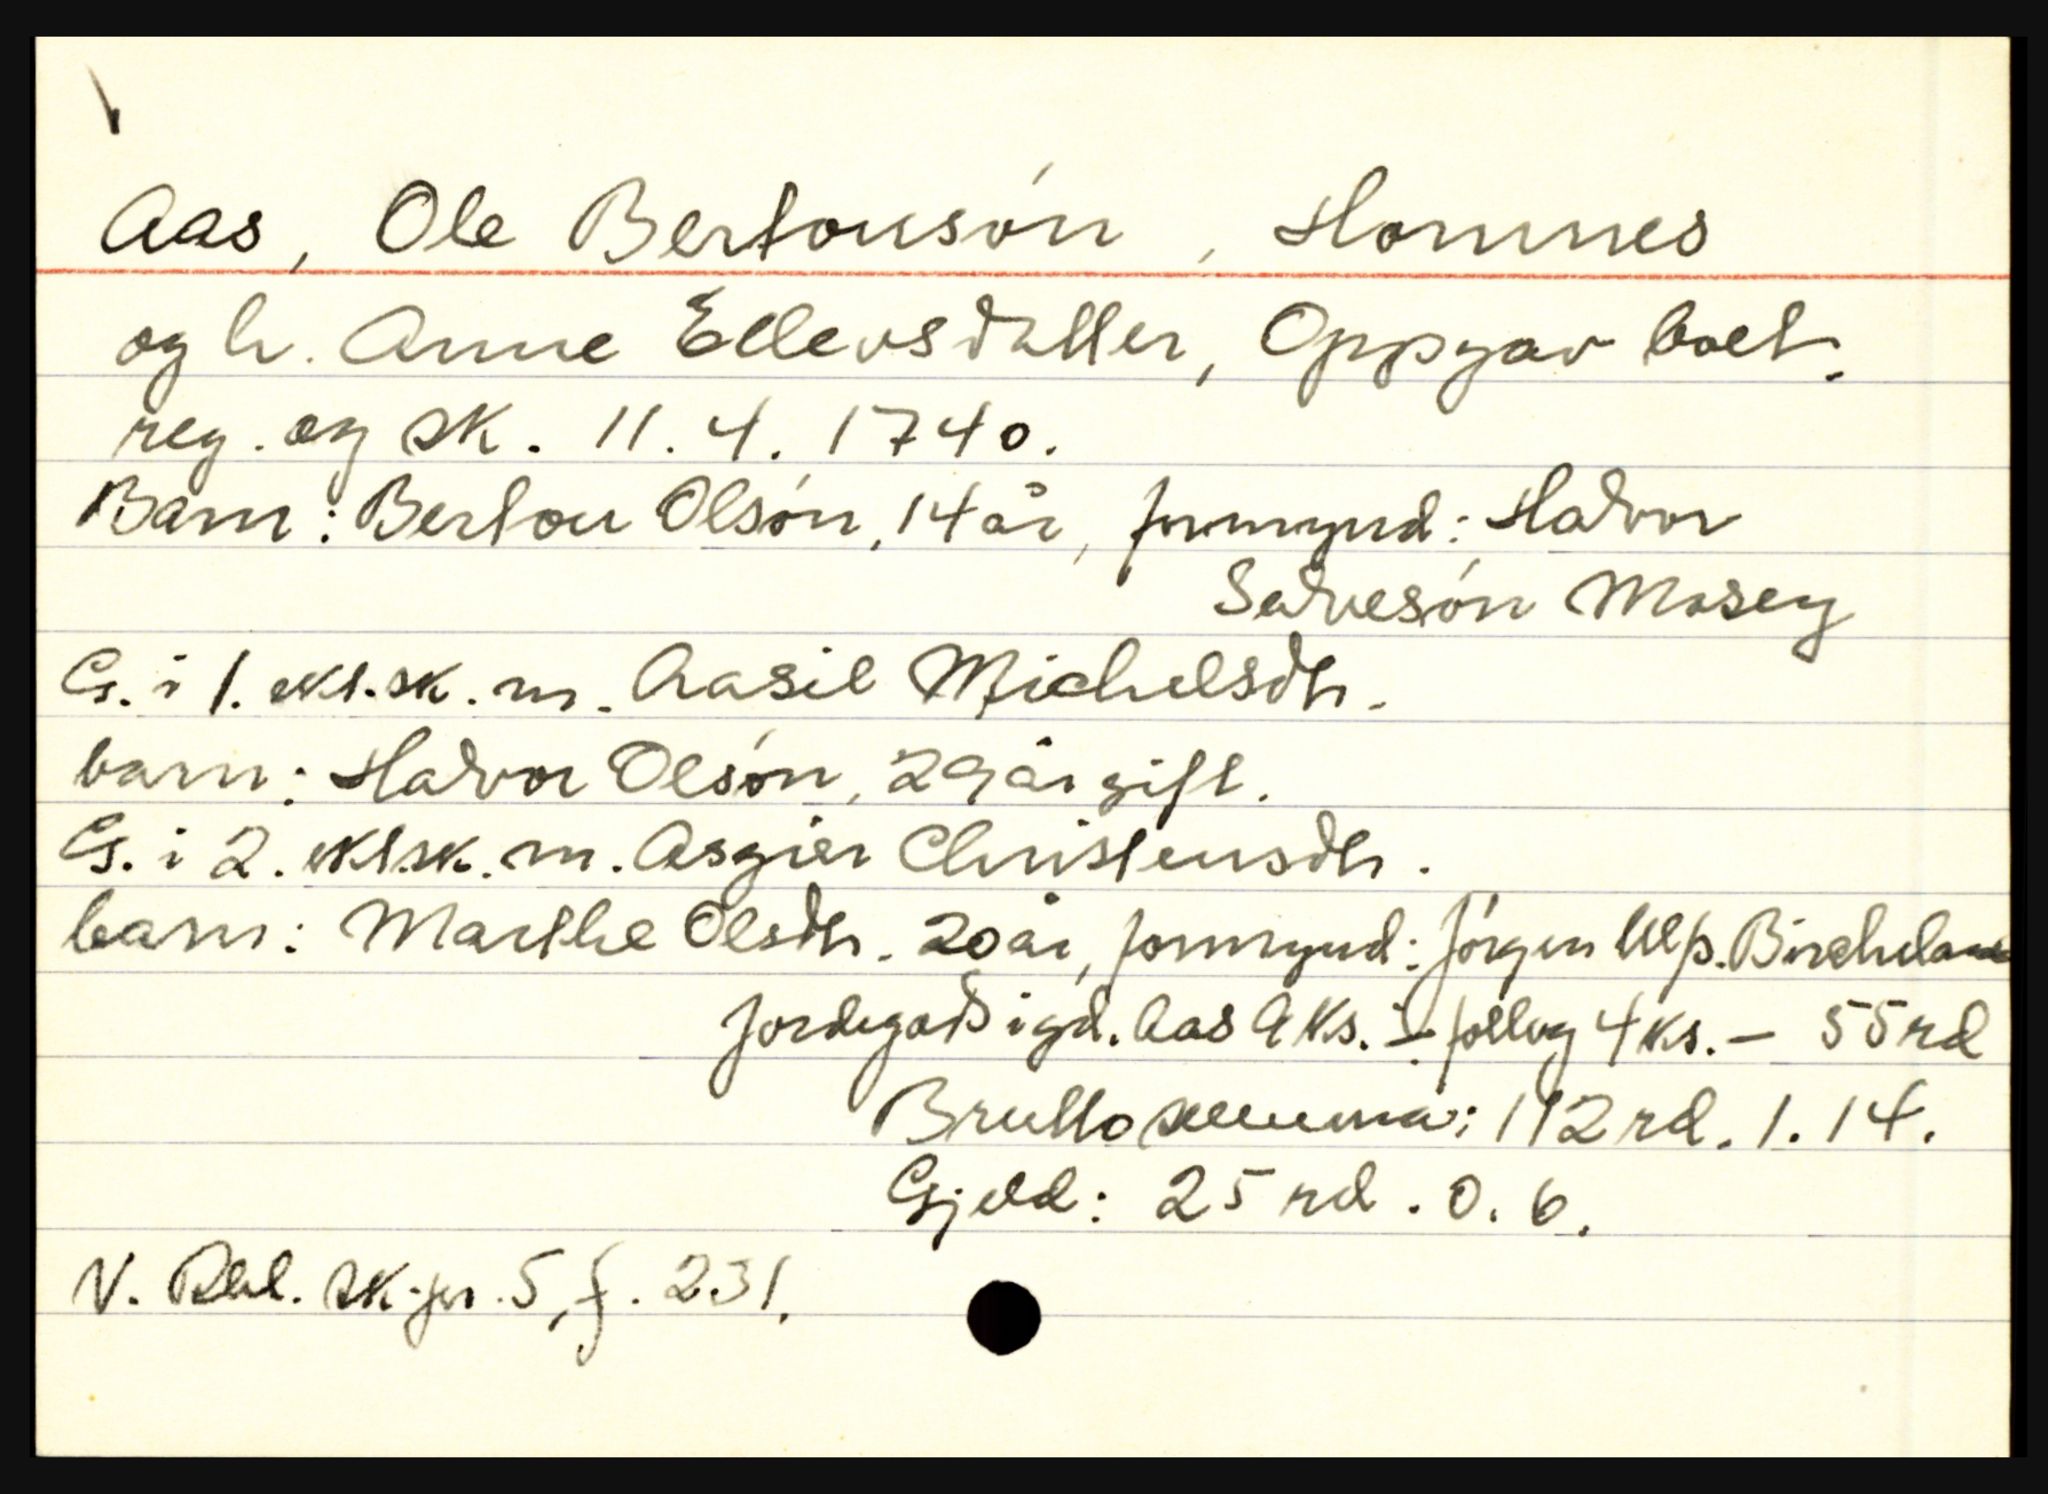 Aas, Ole Bertousón, Hommes
og h. Anne Ellevsdatter, Oppgav boet.
reg. og sk. 11.4.1740.
Barn: Bertou Olsón, 14 år, formynd: Halvor
Salvesón Mosey
G. i 1. ekt.sk. m. Aasil Michelsdtr.
barn: Halvor Olsón, 29 år gift.
G. i 2. ekt.sk. m. Asgier Christensdtr.
barn: Marthe Olsdtr. 20 år, formynd: Jórgen Ulfs. Bircheland
Jordegods i gd. Aas 9 ks. 4 ks. – 55 rd
Brutto summa: 112 rd. 1. 14.
Gjeld: 25 rd. 0. 6.
V. Rbl. sk.pr. 5, f. 231.